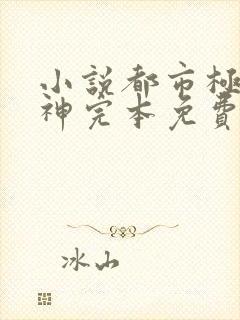 小説都市極
神完本免費
冰山